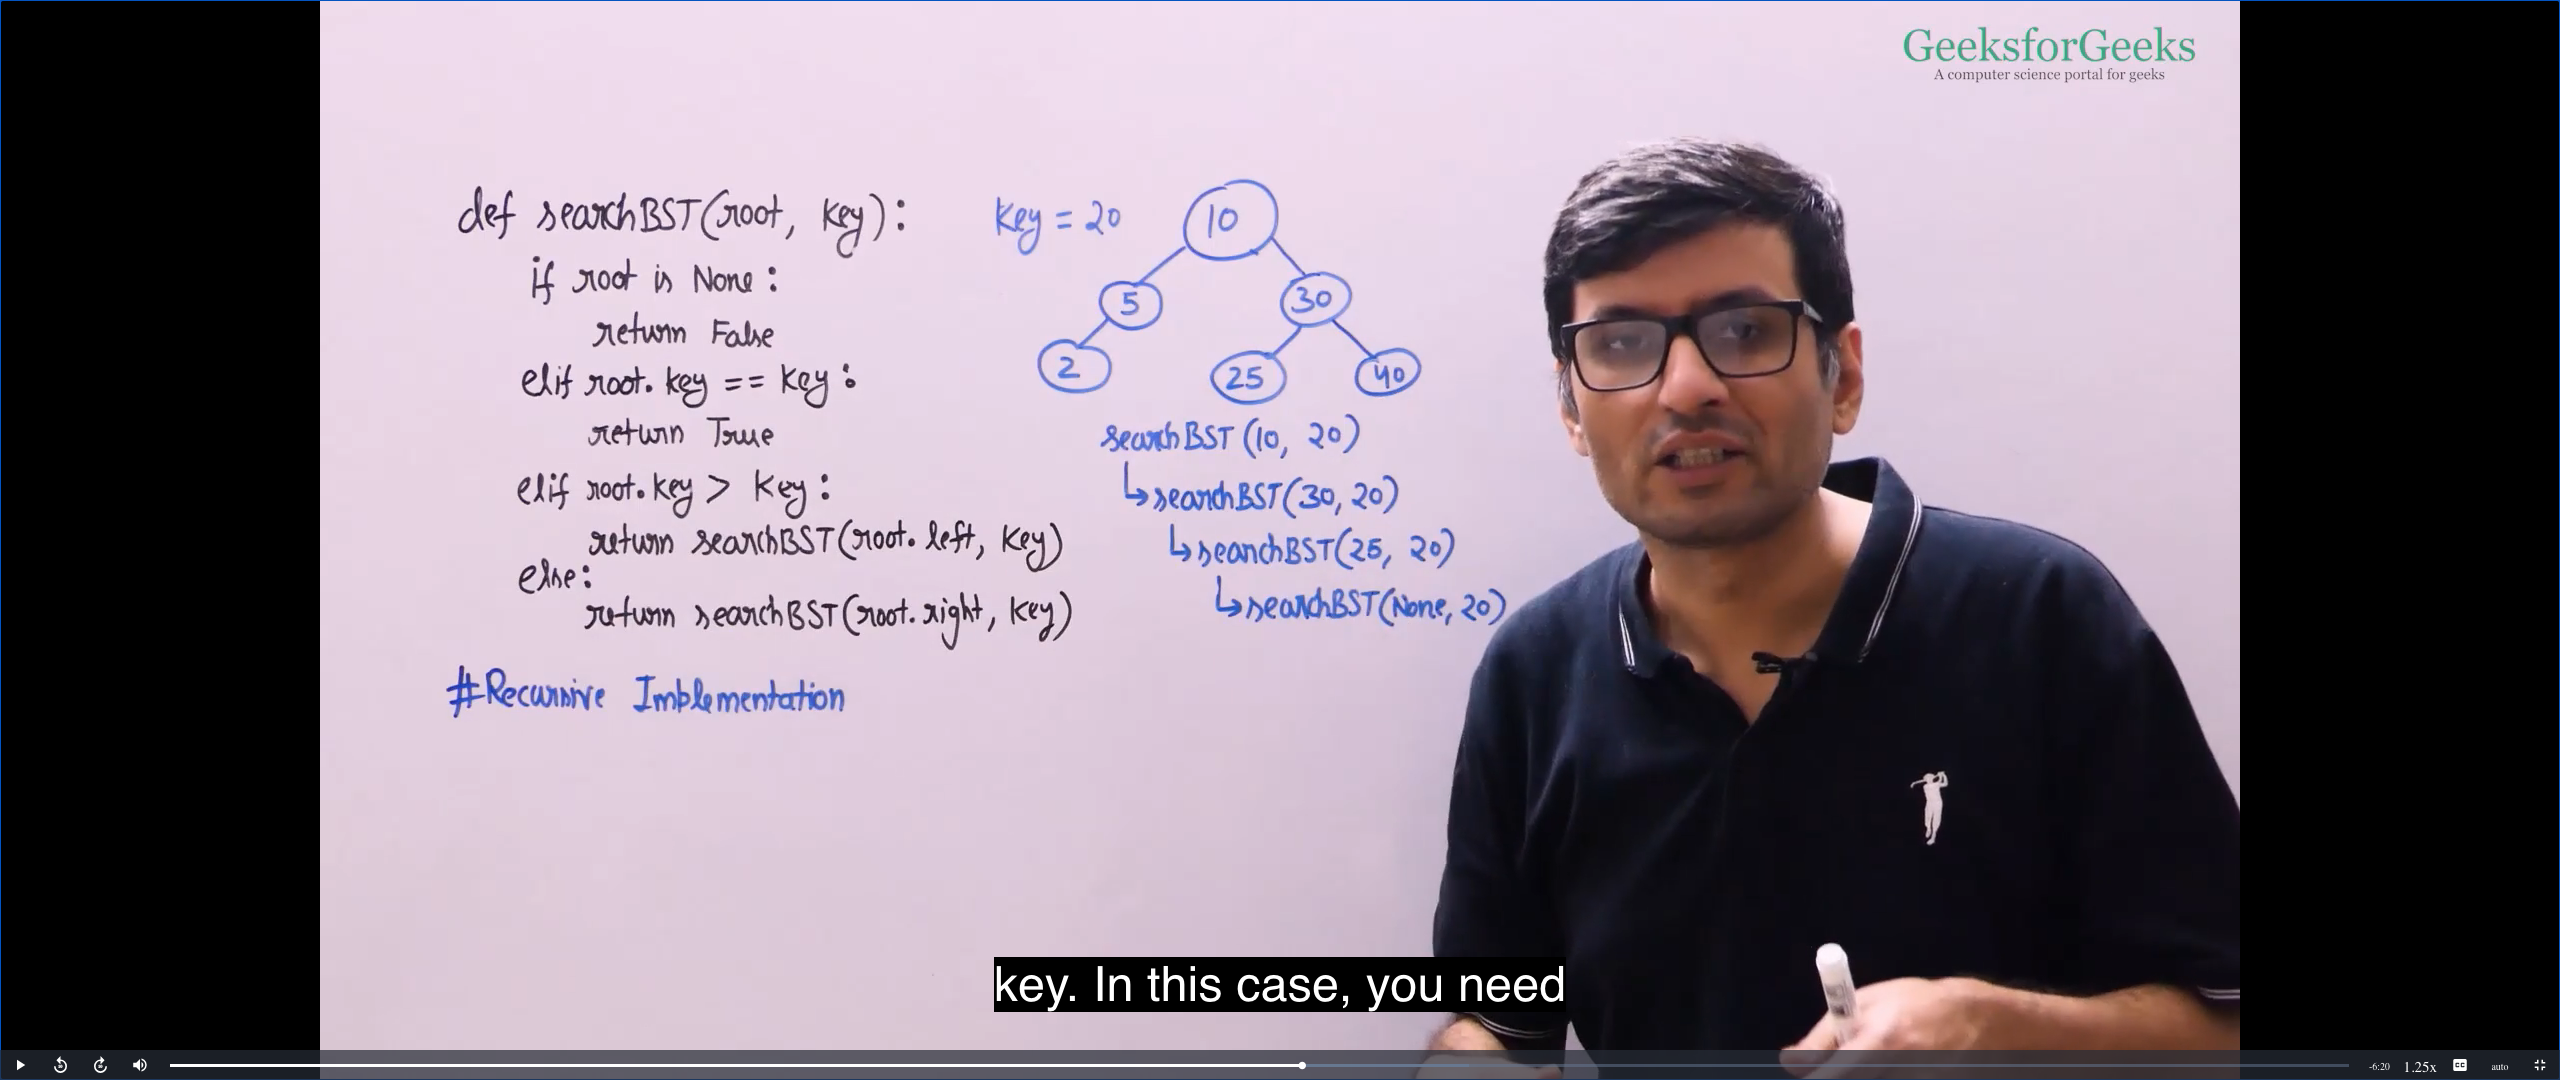 GeeksforGeeks
A computer science portal for geeks
def searchBST(root, key):
if root is None:
return False
elif root.key == key:
return True
elif root.key > key:
return searchBST(root.left, key)
else:
return searchBST(root.right, key)
#Recursive Implementation
key = 20
10
5 30
2 25 40
searchBST(10, 20)
↳searchBST(30, 20)
↳searchBST(25, 20)
↳searchBST(None, 20)
key. In this case, you need
-6:20 1.25x CC auto